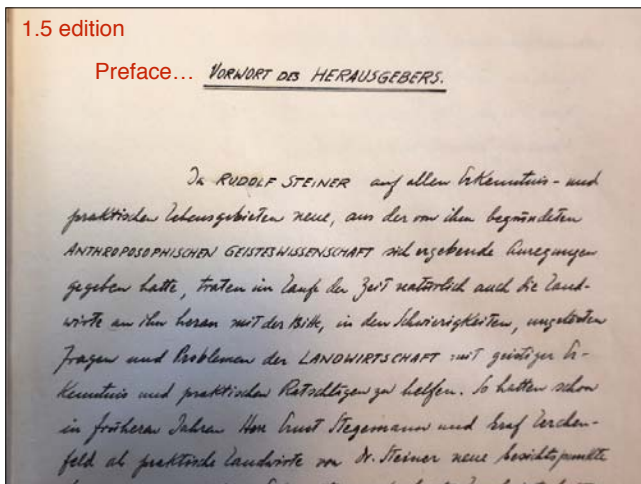 1.5 edition
Preface... VORWORT DES HERAUSGEBERS.
Da RUDOLF STEINER auf allen Erkenntnis- und
praktischen Lebensgebieten neue, aus der von ihm begründeten
ANTHROPOSOPHISCHEN GEISTESWISSENSCHAFT sich ergebende Anregungen
gegeben hatte, traten im Laufe der Zeit natürlich auch die Land-
wirte an ihn heran mit der Bitte, in den Schwierigkeiten, ungelösten
Fragen und Problemen der LANDWIRTSCHAFT mit geistiger Er-
kenntnis und praktischen Ratschlägen zu helfen. So hatten schon
in früheren Jahren Herr Ernst Stegemann und Graf Kerchen-
feld als praktische Landwirte von Dr. Steiner neue Gesichtspunkte